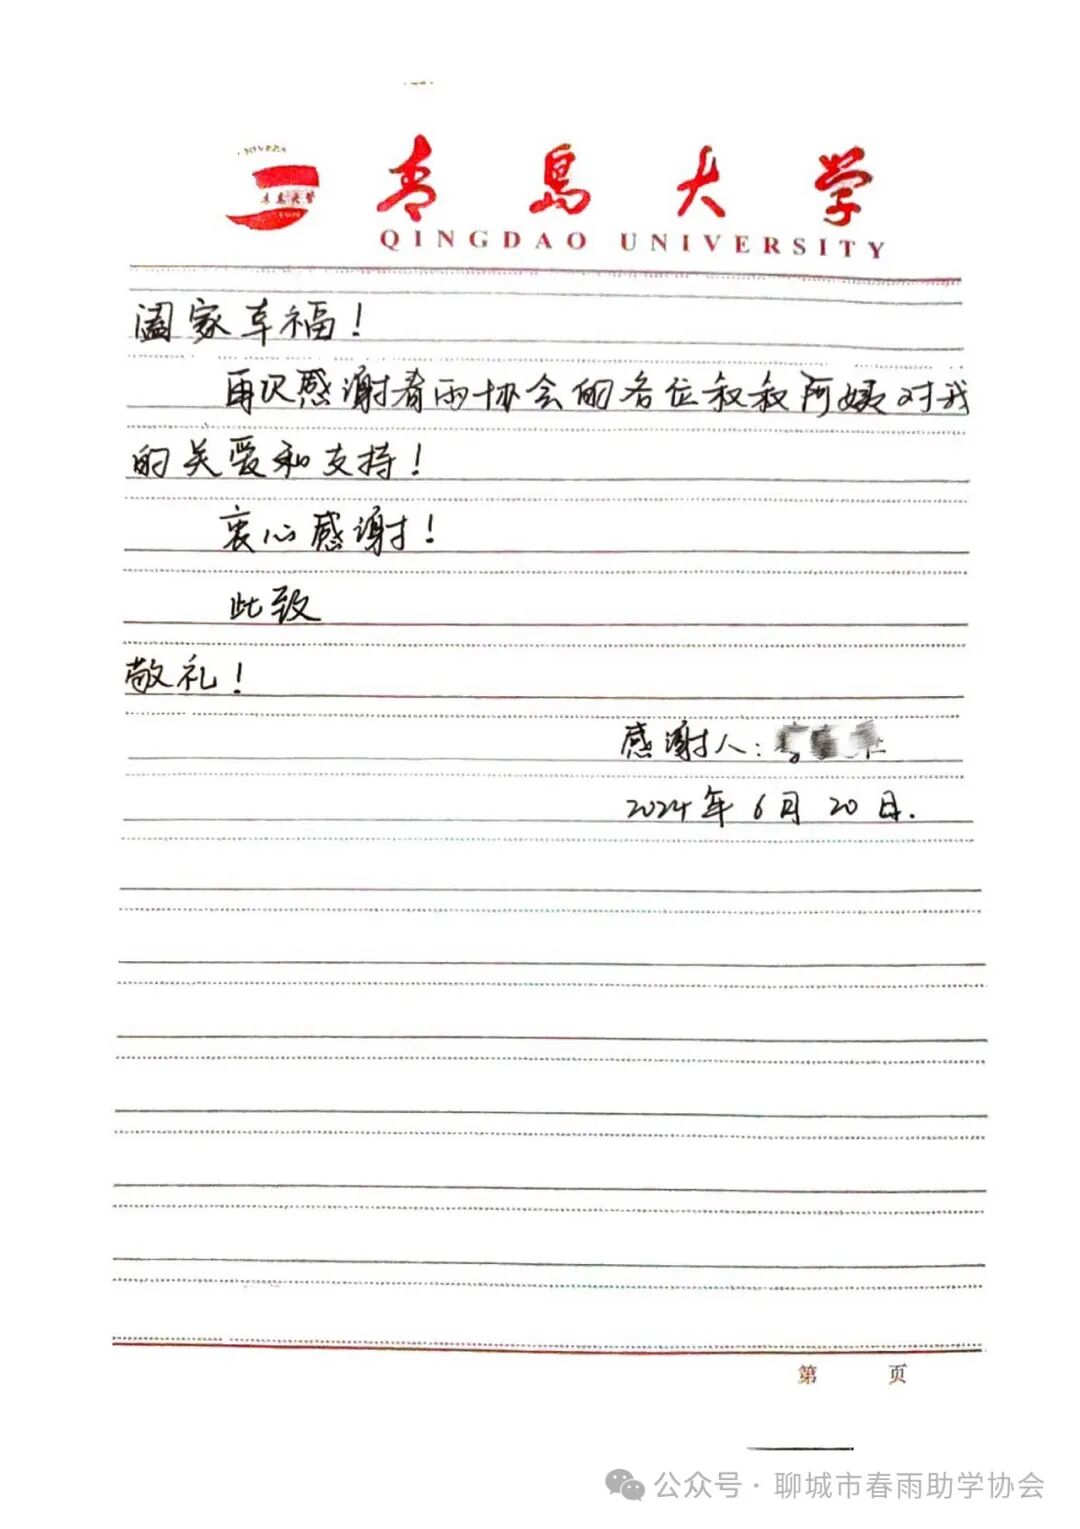 青岛大学
QINGDAO UNIVERSITY
阖家幸福！
再次感谢春雨协会的各位叔叔阿姨对我
的关爱和支持！
衷心感谢！
此致
敬礼！
感谢人：
2024年6月20日.
第 页
公众号·聊城市春雨助学协会